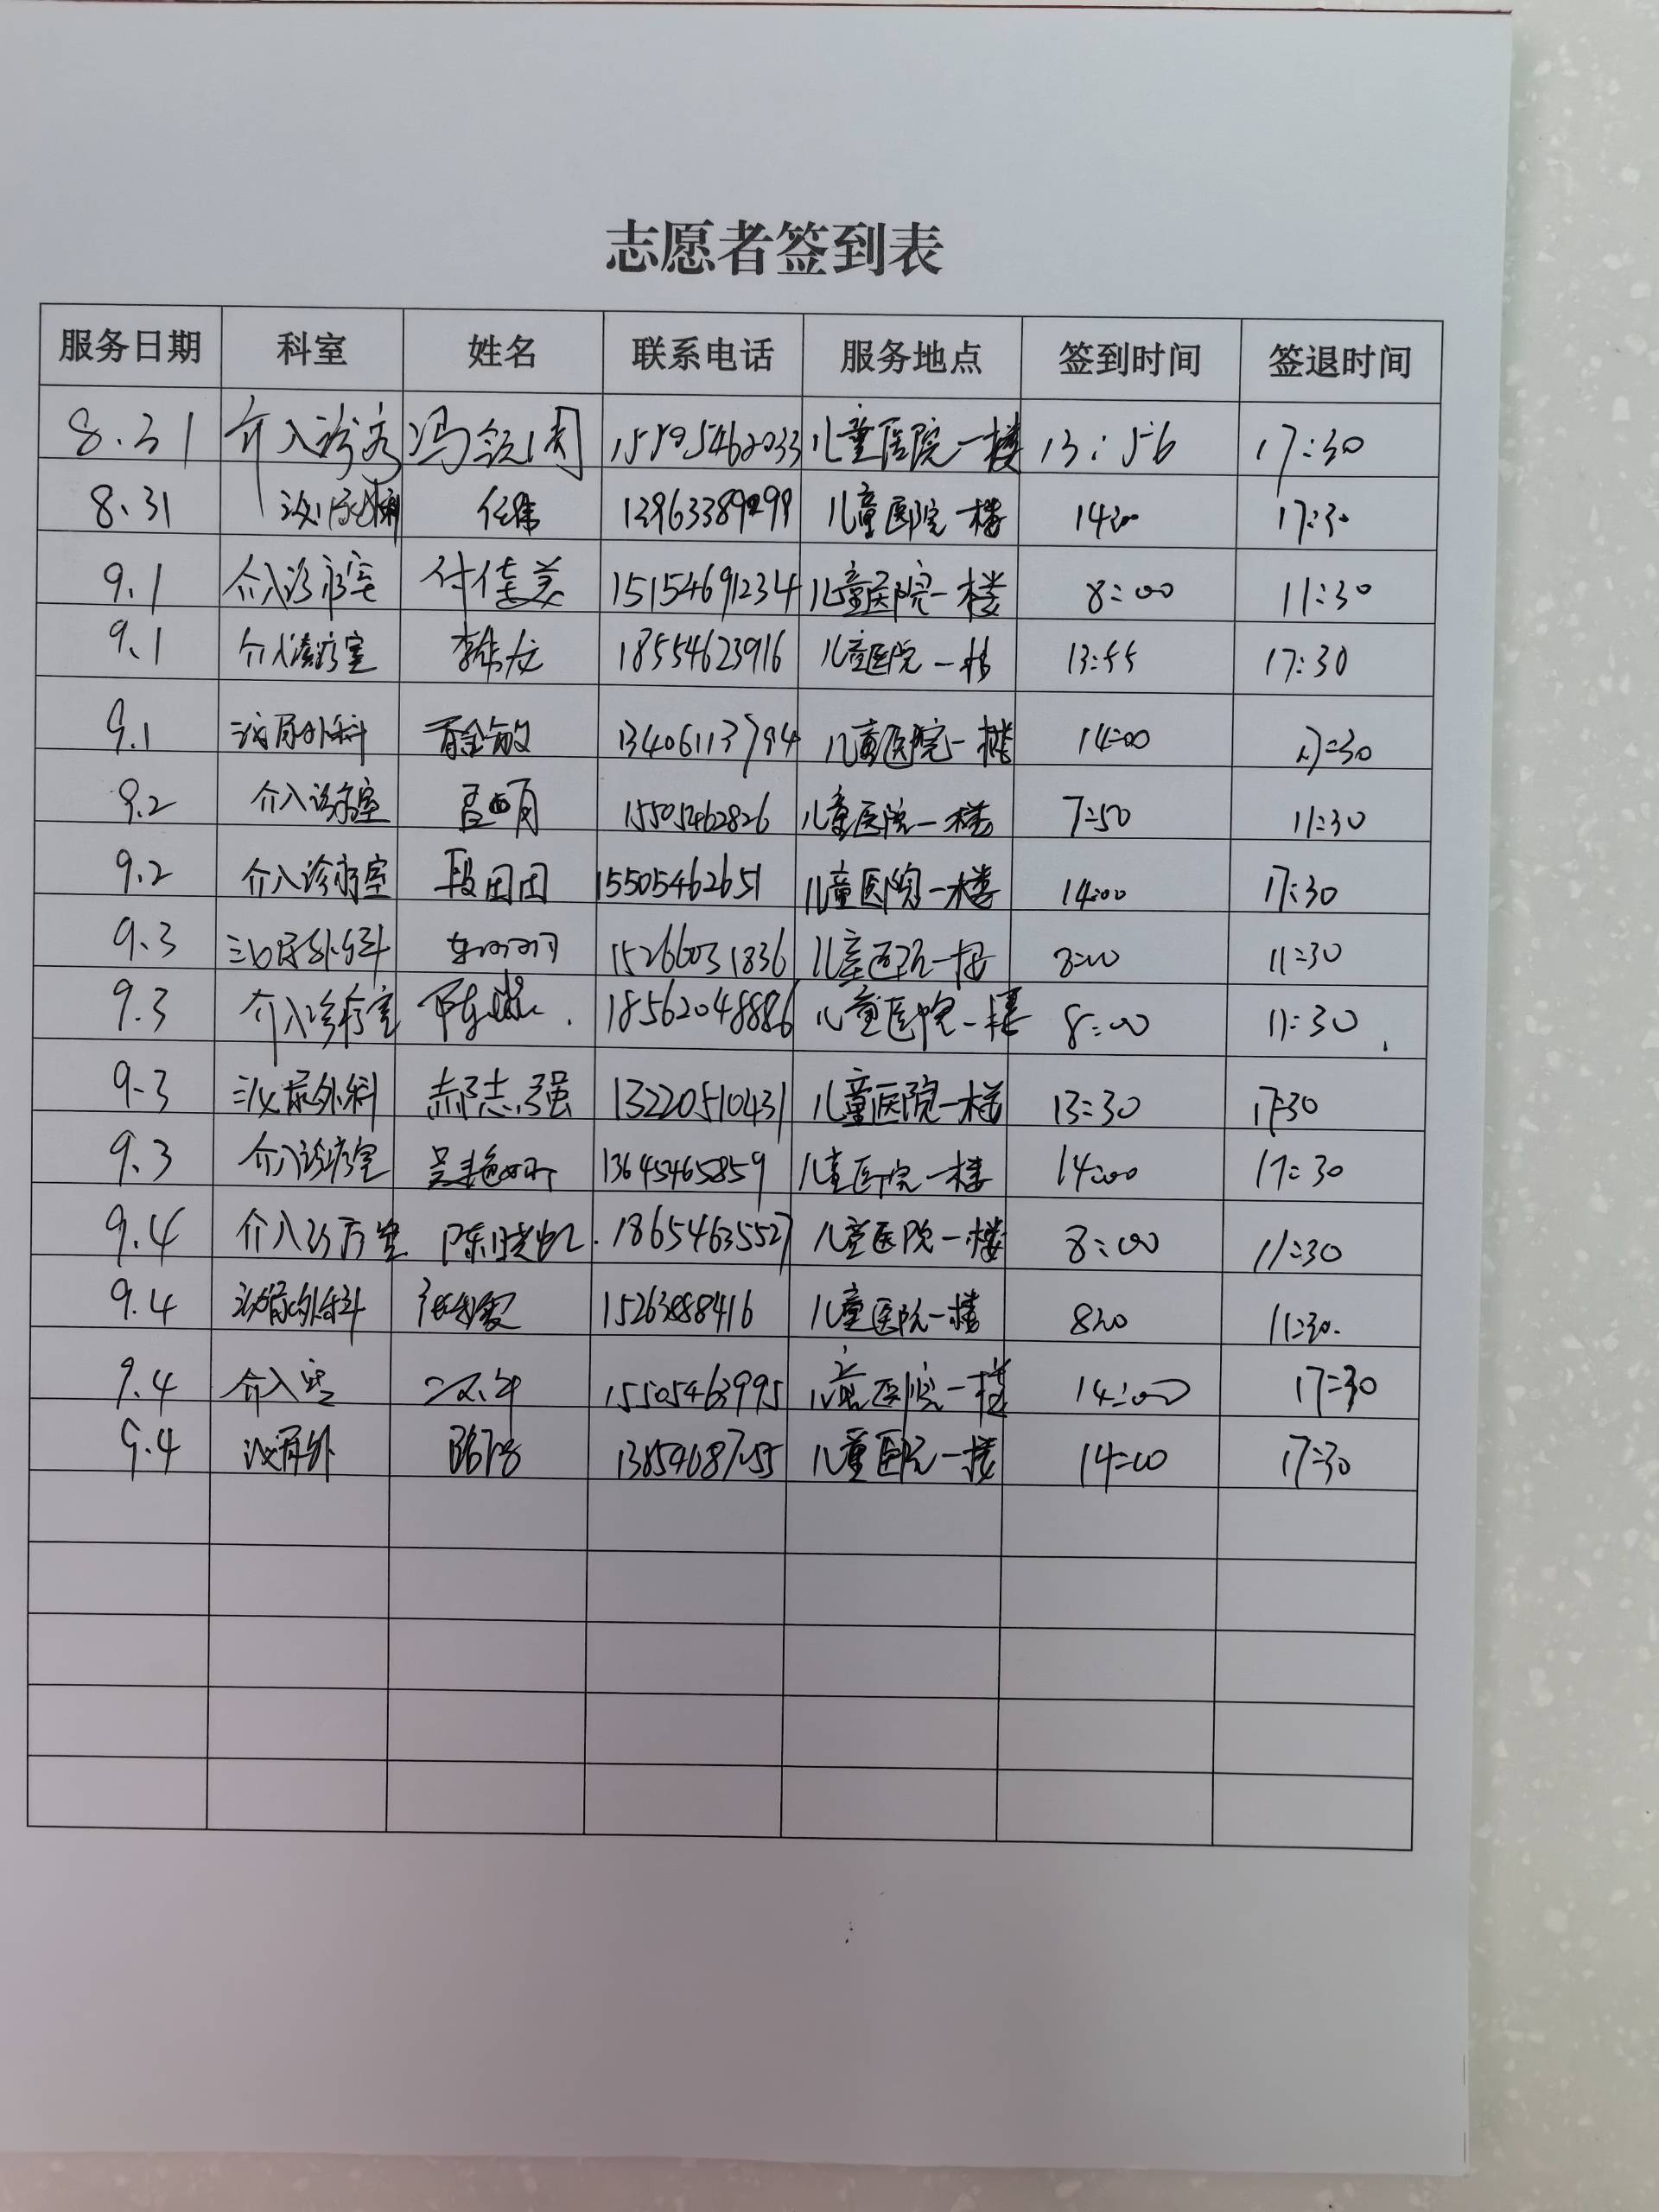 志愿者签到表
服务日期 科室 姓名 联系电话 服务地点 签到时间 签退时间
8.31 介入诊疗 冯 15505462033 儿童医院一楼 13:56 17:30
8.31 泌尿外科 任伟 儿童医院一楼 14:00 17:30
9.1 介入诊疗室 付佳美 15154691234 儿童医院一楼 8:00 11:30
9.1 介入诊疗室 李伟龙 18554623916 儿童医院一楼 13:55 17:30
9.1 泌尿外科 13406113794 儿童医院一楼 14:00 17:30
9.2 介入诊疗室 15505462826 儿童医院一楼 7:50 11:30
9.2 介入诊疗室 段团团 15505462651 儿童医院一楼 14:00 17:30
9.3 泌尿外科 15266031836 儿童医院一楼 8:00 11:30
9.3 介入诊疗室 18562048886 儿童医院一楼 8:00 11:30
9.3 泌尿外科 郝志强 13220510431 儿童医院一楼 13:30 17:30
9.3 介入诊疗室 吴艳娇 13645465859 儿童医院一楼 14:00 17:30
9.4 介入诊疗室 陈晓凯 18654635527 儿童医院一楼 8:00 11:30
9.4 泌尿外科 儿童医院一楼 8:00 11:30.
9.4 介入室 15505463995 儿童医院一楼 14:00 17:30
9.4 泌尿外 儿童医院一楼 14:00 17:30